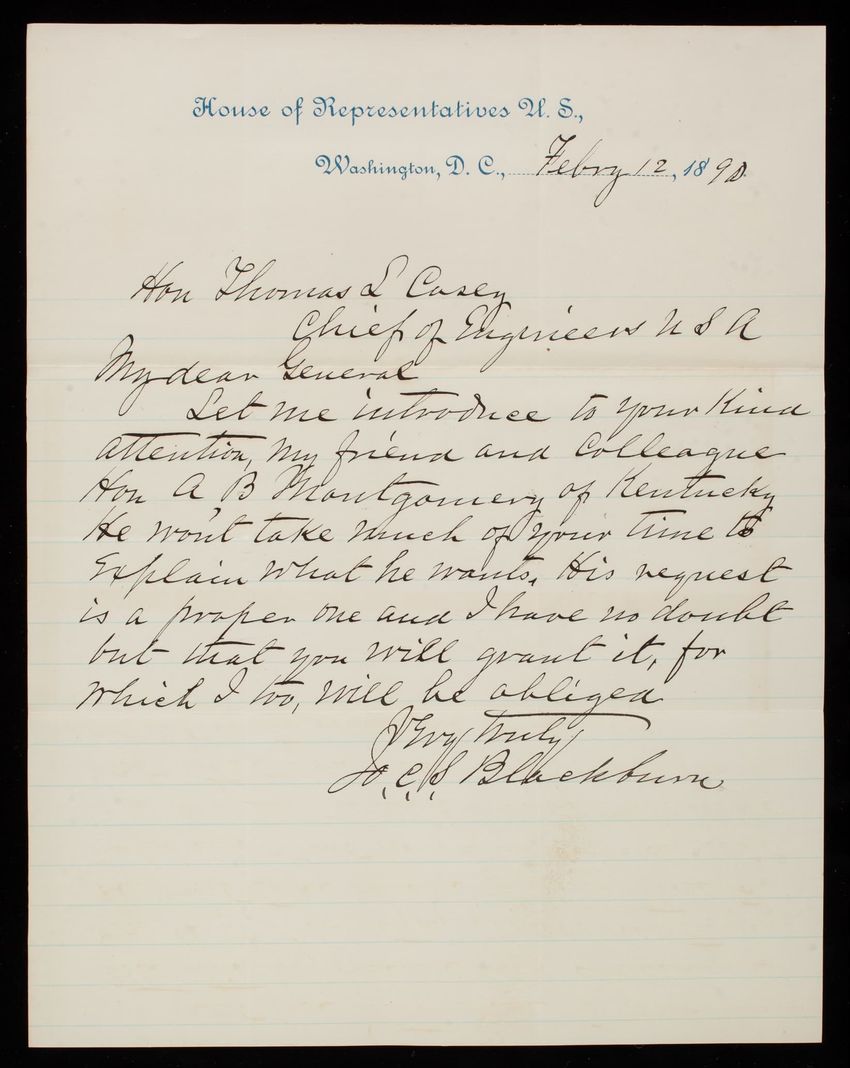 House of Representatives U. S.,
Washington, D. C., Febry 12, 1890
Hon Thomas L Casey
Chief of Engineers U S A
My dear General
Let me introduce to your kind
attention, my friend and colleague
Hon A, B Montgomery of Kentucky
He won't take much of your time to
explain what he wants. His request
is a proper one and I have no doubt
but that you will grant it, for
which I too, will be obliged
Very truly
Jo, C, S, Blackburn